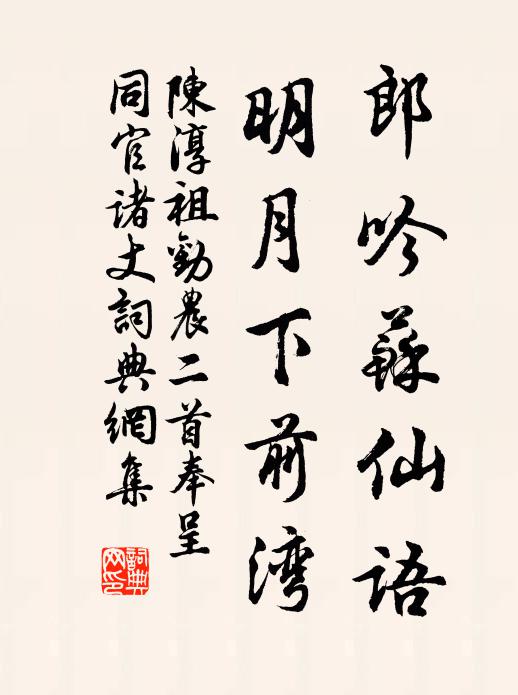 郎吟蘇仙語
明月下前湾
陳淳祖勸農二首奉呈
同官诸丈詞典網集
詞典
网印